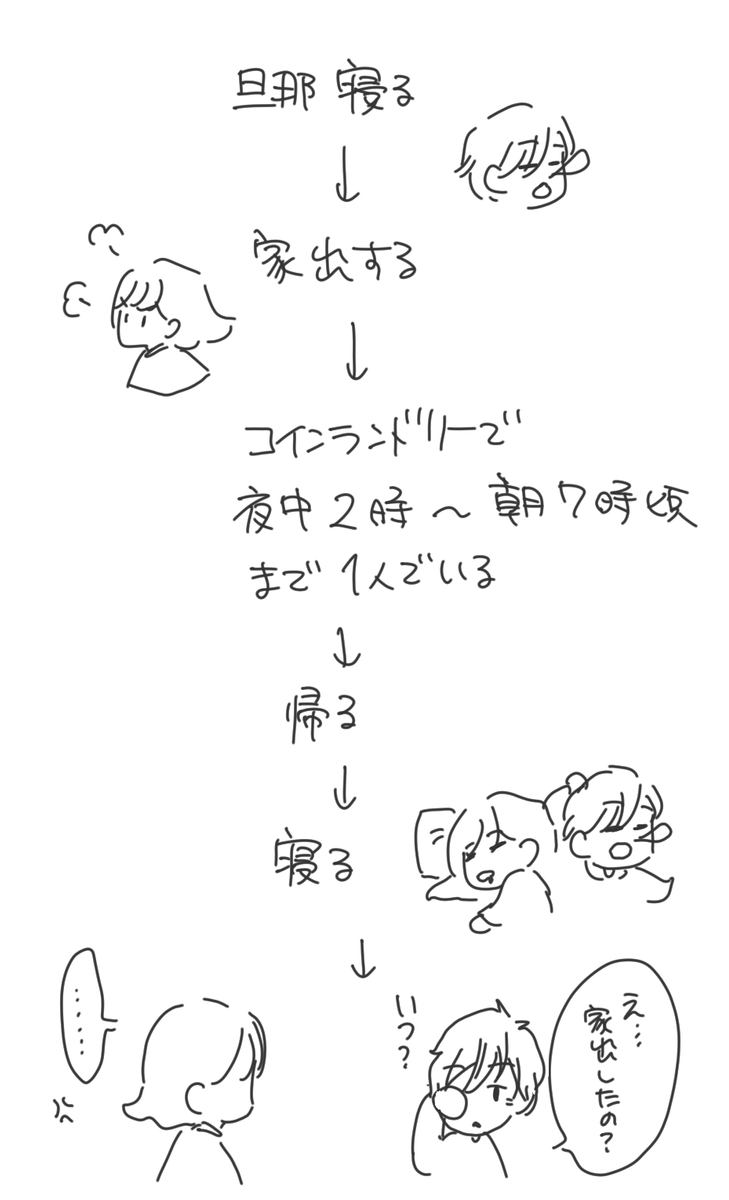 旦那 寝る
↓
家出する
↓
コインランドリーで
夜中2時〜朝7時頃
まで1人でいる
↓
帰る
↓
寝る
↓
え…
家出したの?
いつ?
……